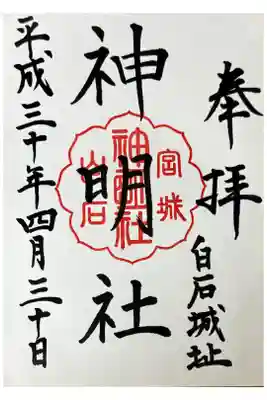 奉拝
白石城址
神明社
宮城
神明社
白石
平成三十年四月三十日